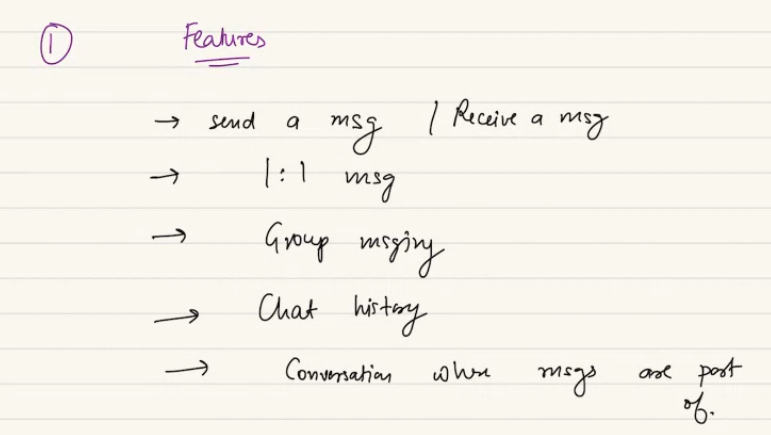 ① Features
→ send a msg / Receive a msg
→ 1:1 msg
→ Group msging
→ Chat history
→ Conversation where msgs are part
of.